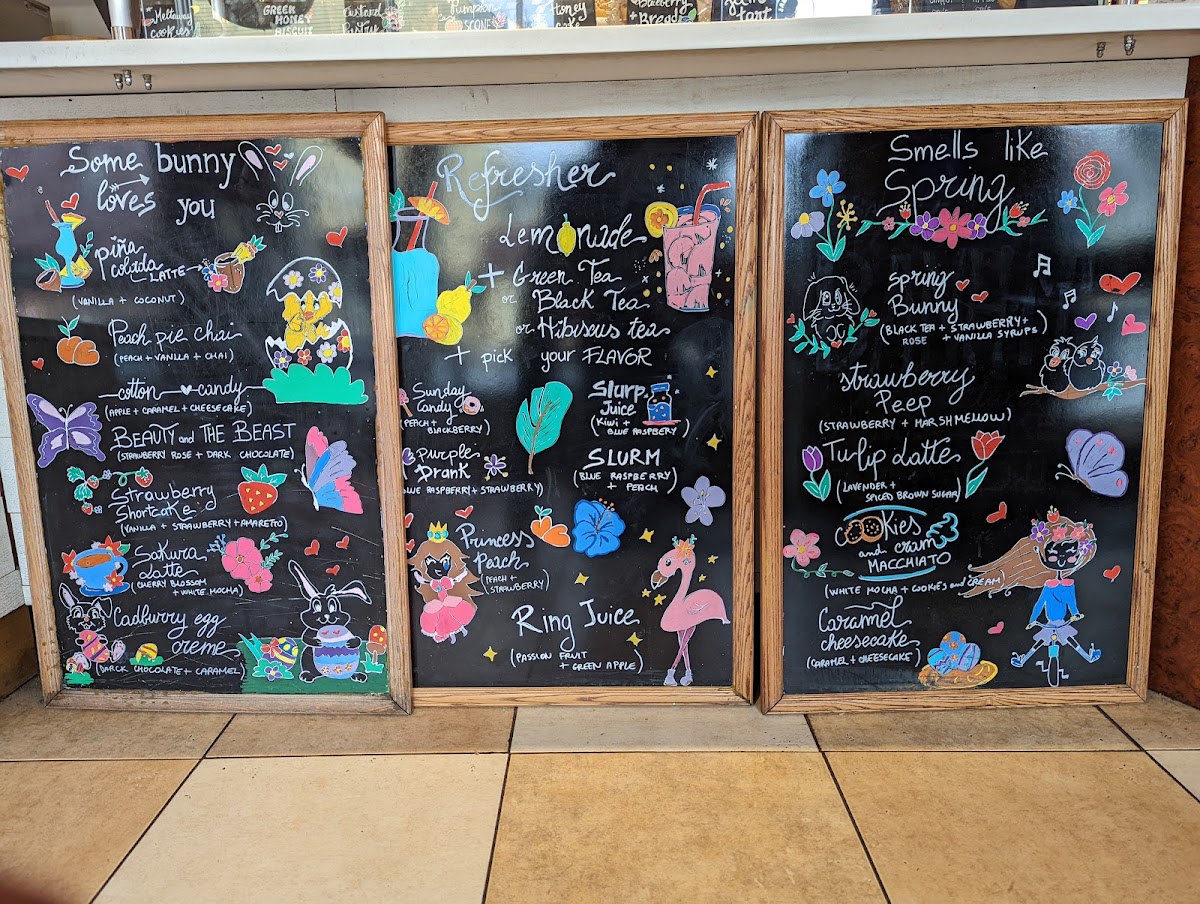 Meltaway
cookies
GREEN
HONEY
BISCUIT
Custard
Pumpkin
SCONE
Honey
Cake
Bread
Some bunny
loves you
piña
colada LATTE
(VANILLA + COCONUT)
Peach pie chai
(PEACH + VANILLA + CHAI)
cotton candy
(APPLE + CARAMEL + CHEESECAKE)
BEAUTY and THE BEAST
(STRAWBERRY ROSE + DARK CHOCOLATE)
Strawberry
Shortcake
(VANILLA + STRAWBERRY + AMARETTO)
Sakura
Latte
(CHERRY BLOSSOM
+ WHITE MOCHA)
Cadburry egg
creme
(DARCK CHOCOLATE + CARAMEL)
Refresher
Lemonade
+ Green Tea
or Black Tea
or Hibiscus tea
+ pick your FLAVOR
Sunday
Candy
(PEACH +
BLACKBERRY)
Slurp
Juice
(KIWI +
BLUE RASPBERY)
Purple
Drank
BLUE RASPBERRY + STRAWBERRY)
SLURM
(BLUE RASPBERRY
+ PEACH)
Princess
Peach
(PEACH +
STRAWBERRY)
Ring Juice
(PASSION FRUIT
+ GREEN APPLE)
Smells like
Spring
Spring
Bunny
(BLACK TEA + STRAWBERRY +
ROSE + VANILLA SYRUPS)
strawberry
Peep
(STRAWBERRY + MARSHMELLOW)
Tulip Latte
(LAVENDER +
SPICED BROWN SUGAR)
COOKIES
and cram
MACCHIATO
(WHITE MOCHA + COOKIES AND CREAM)
Caramel
cheesecake
(CARAMEL + CHEESECAKE)